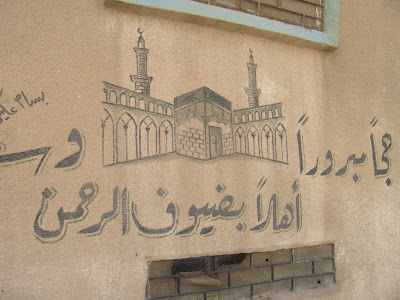 بسام
حجاً مبروراً
أهلاً بضيوف الرحمن